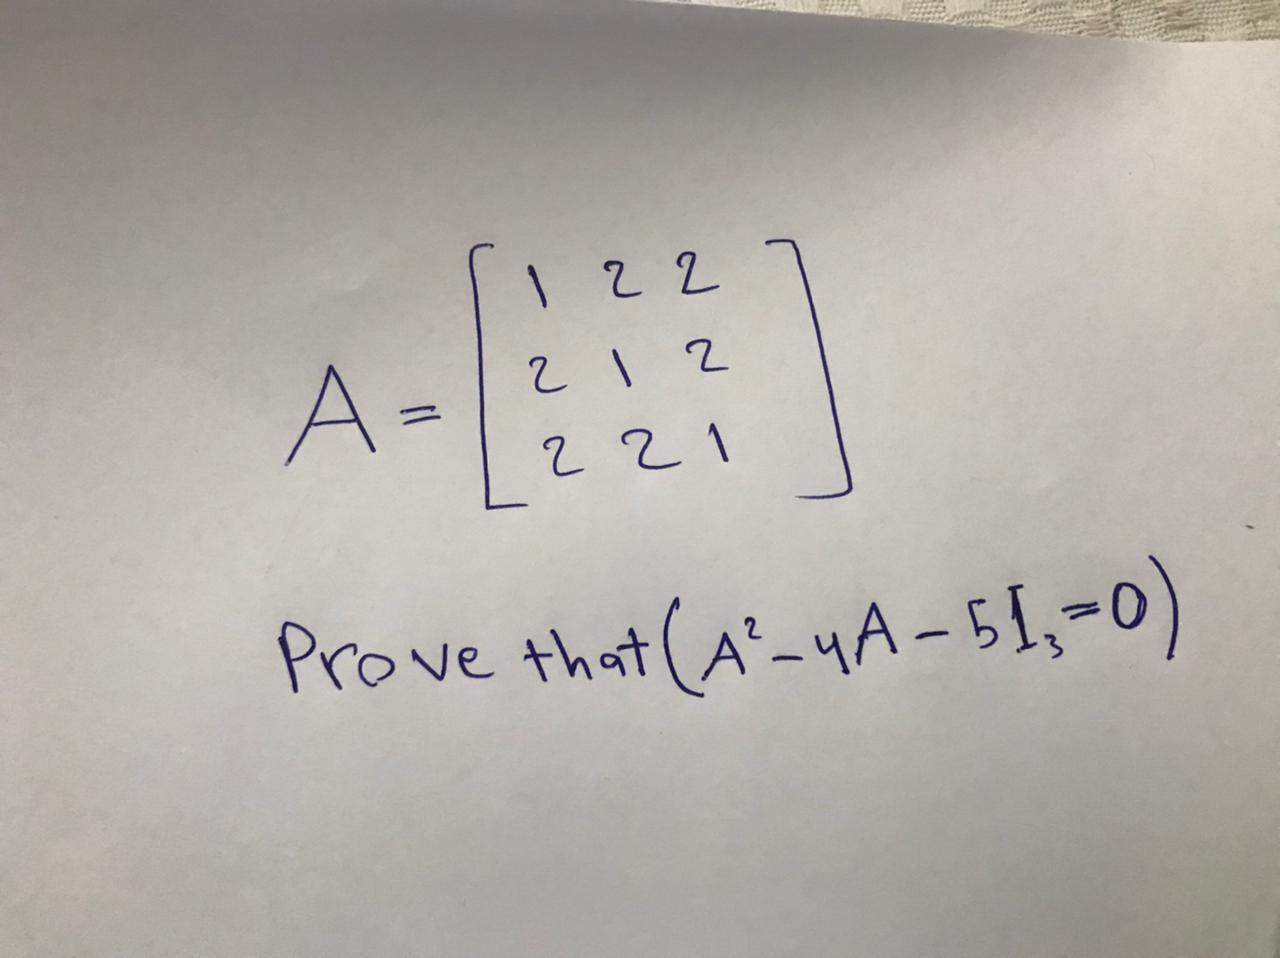 A = [ 1 2 2
2 1 2
2 2 1 ]
Prove that (A² - 4A - 5I₃ = 0)